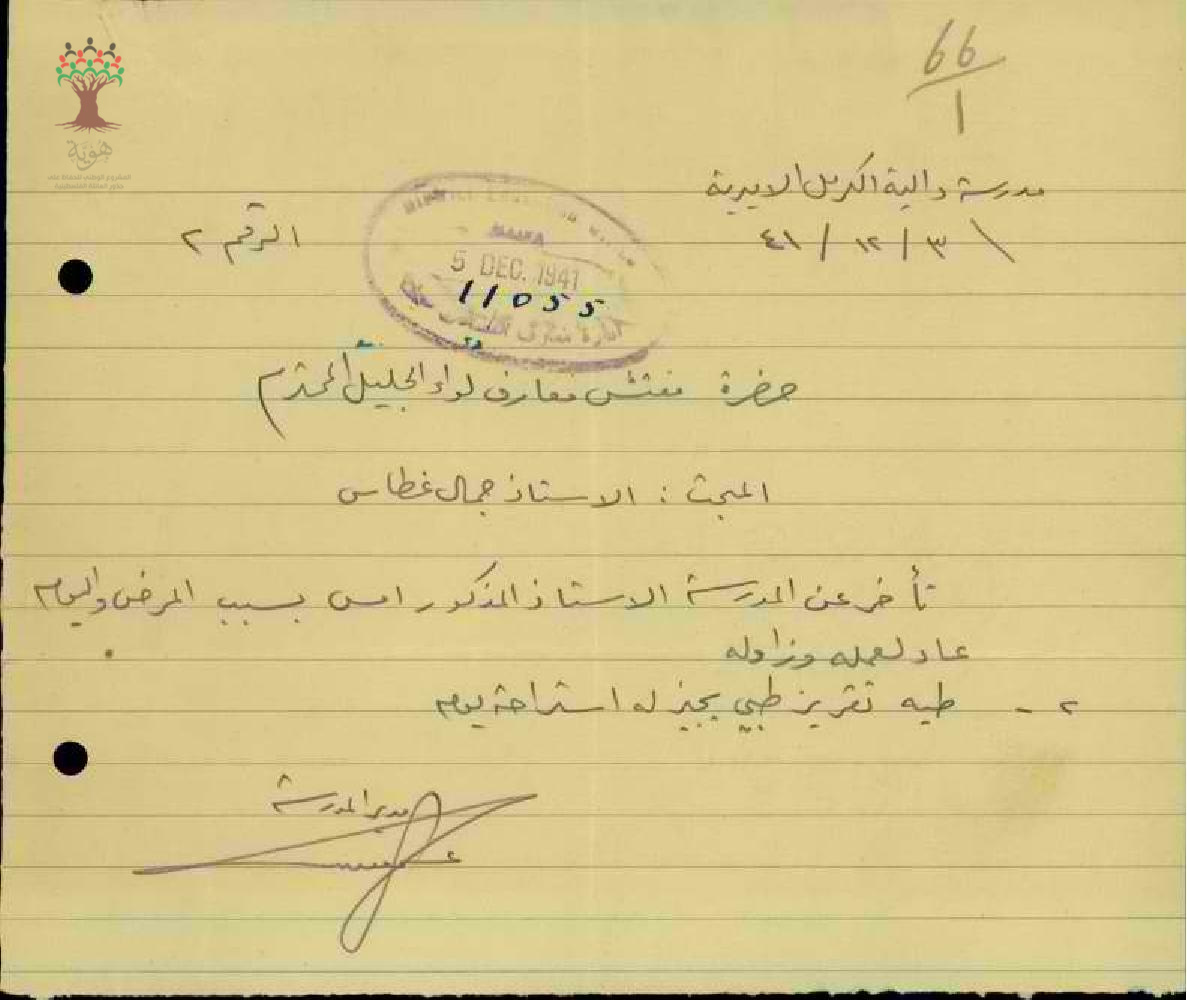 66
1
هوية
مدرسة دالية الكرمل الاميرية
٣ / ١٢ / ٤١
الرقم ٢
HAIFA
5 DEC. 1941
11055
حضرة مفتش معارف لواء الجليل المحترم
المبحث : الاستاذ جمال غطاس
تأخر عن المدرسة الاستاذ المذكور امس بسبب المرض واليوم
عاد لعمله وزاوله .
٢ - طيه تقرير طبي يجيز له استراحة يوم
مدير المدرسة